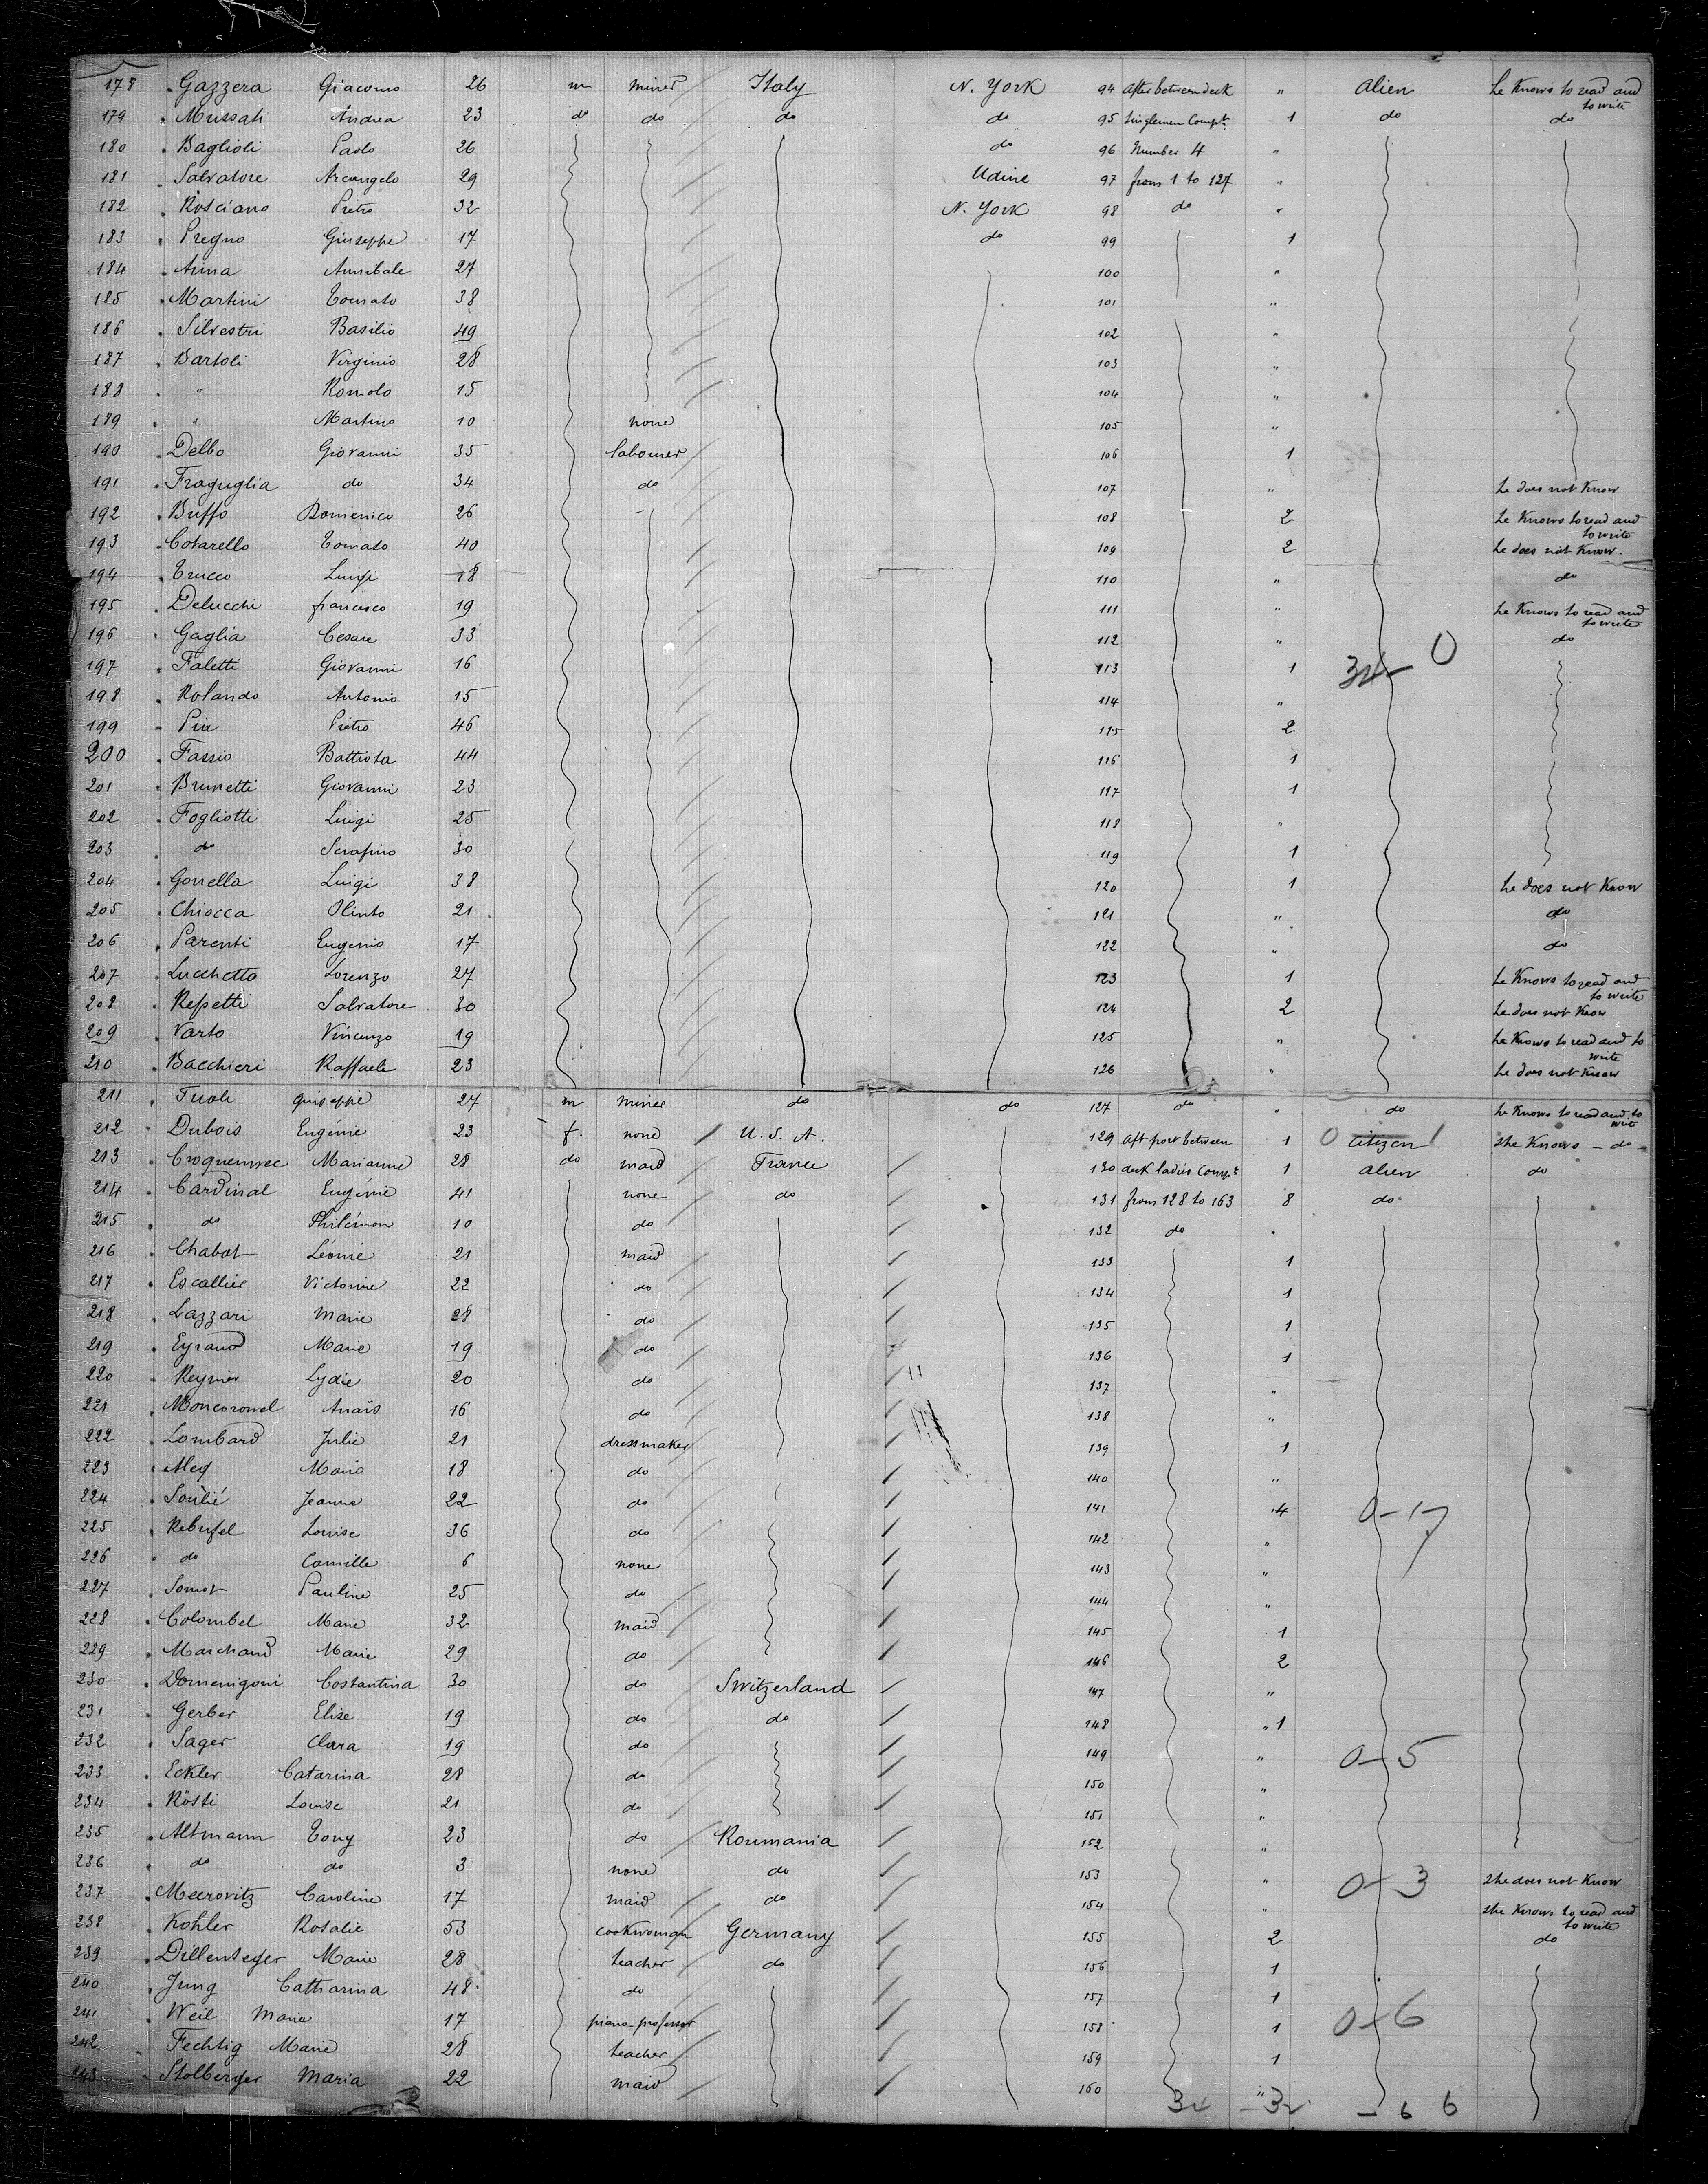 178 Gazzera Giacomo 26 m miner Italy N. York 94 after between deck " alien he Knows to read and to write
179 Mussati Andrea 23 do do do do 95 Singlemen Compt. 1 do do
180 Baglioli Paolo 26 do 96 Number 4 "
181 Salvatore Arcangelo 29 Udine 97 from 1 to 127 "
182 Rosciano Pietro 32 N. York 98 do "
183 Pregno Giuseppe 17 do 99 1
184 Anna Annibale 27 100 "
185 Martini Tomato 38 101 "
186 Silvestri Basilio 49 102 "
187 Bartoli Virginio 28 103 "
188 " Romolo 15 104 "
189 " Martino 10 none 105 "
190 Delbo Giovanni 35 labourer 106 1
191 Fraguglia do 34 do 107 " he does not Know
192 Buffo Domenico 26 108 2 he Knows to read and to write
193 Cotarello Tomato 40 109 2 he does not Know
194 Trucco Luigi 18 110 " do
195 Delucchi francesco 19 111 " he Knows to read and to write
196 Gaglia Cesare 33 112 " do
197 Faletti Giovanni 16 113 1 34 0
198 Rolando Antonio 15 114 "
199 Pia Pietro 46 115 2
200 Fassio Battista 44 116 1
201 Brunetti Giovanni 23 117 1
202 Fogliotti Luigi 25 118 "
203 do Serafino 30 119 1
204 Gonella Luigi 38 120 1 he does not Know
205 Chiocca Olinto 21 121 " do
206 Parenti Eugenio 17 122 " do
207 Lucchetto Lorenzo 27 123 1 he Knows to read and to write
208 Repetti Salvatore 30 124 2 he does not Know
209 Varto Vincenzo 19 125 " he Knows to read and to write
210 Bacchieri Raffaele 23 126 " he does not Know
211 Tuoli Guiseppe 27 m miner do do 127 do " do he Knows to read and to write
212 Dubois Eugénie 23 f. none U. S. A. 129 aft port between 1 0 citizen 1 she Knows - do -
213 Marianne 28 do maid France 130 deck ladies Compt 1 alien do
214 Cardinal Eugénie 41 none do 131 from 128 to 163 8 do
215 do Philémon 10 do 132 do "
216 Chabot Léonie 21 maid 133 1
217 Escallier Victorine 22 do 134 1
218 Lazzari Marie 28 do 135 1
219 Eyraud Marie 19 do 136 1
220 Reynier Lydie 20 do 137 "
221 Anaïs 16 do 138 "
222 Lombard Julie 21 dressmaker 139 1
223 Marie 18 do 140 "
224 Soulié Jeanne 22 do 141 4 0-17
225 Rebufel Louise 36 do 142 "
226 do Camille 6 none 143 "
227 Pauline 25 do 144 "
228 Colombel Marie 32 maid 145 1
229 Marchand Marie 29 do 146 2
230 Domenigoni Costantina 30 do Switzerland 147 "
231 Gerber Elise 19 do do 148 "1
232 Sager Clara 19 do 149 " 0-5
233 Eckler Catarina 28 do 150 "
234 Rösti Louise 21 do 151 "
235 Altmann Tony 23 do Roumania 152 "
236 do do 3 none do 153 " 0-3 she does not Know
237 Meerovitz Caroline 17 maid do 154 " she Knows to read and to write
238 Kohler Rosalie 53 cookwoman Germany 155 2 do
239 Marie 28 teacher do 156 1
240 Jung Catharina 48 do 157 1
241 Weil Marie 17 piano-professor 158 1 0-6
242 Fechtig Marie 28 teacher 159 1
243 Stolberger Maria 22 maid 160 "
32 - 32 - 6 6